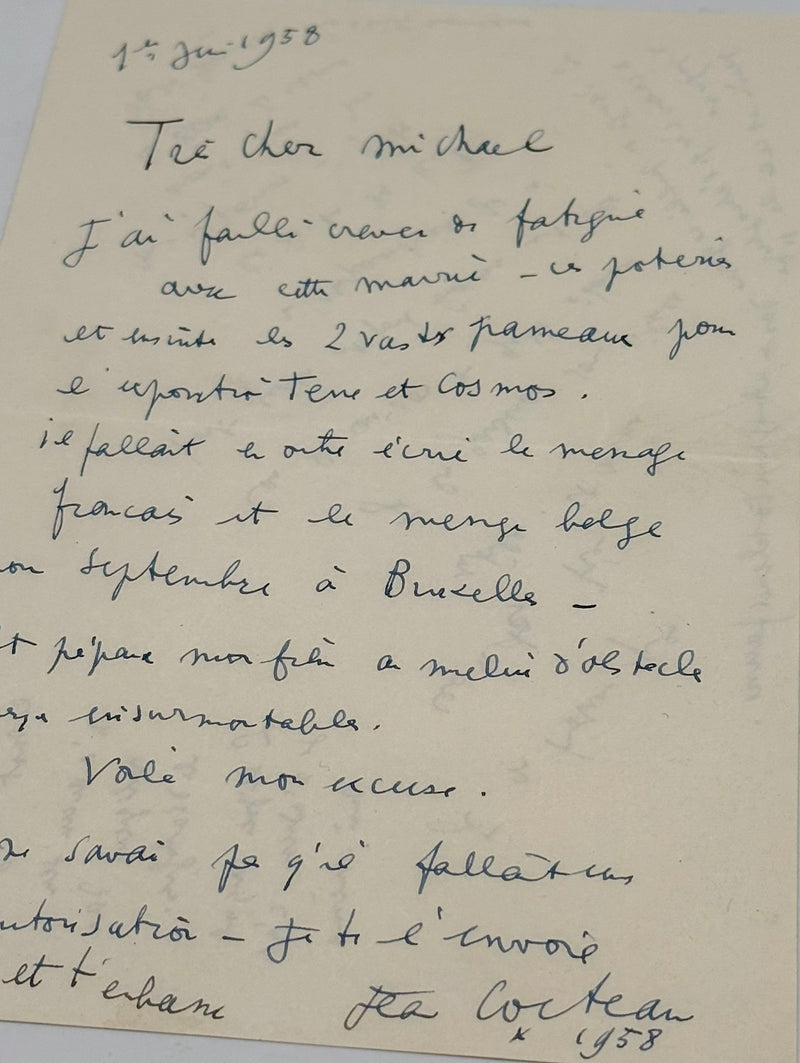 1er Jui 1958
Très cher Michael
J'ai failli crever de fatigue
avec cette mairie - ces poteries
et ensuite les 2 vastes panneaux pour
l'exposition Terre et Cosmos.
il fallait en outre écrire le message
français et le message belge
septembre à Bruxelles -
prépare mon film au milieu d'obstacle
insurmontables.
Voilà mon excuse.
savais pas qu'il fallait une
utorisation - Je te l'envoie
et t'embrasse Jean Cocteau
1958